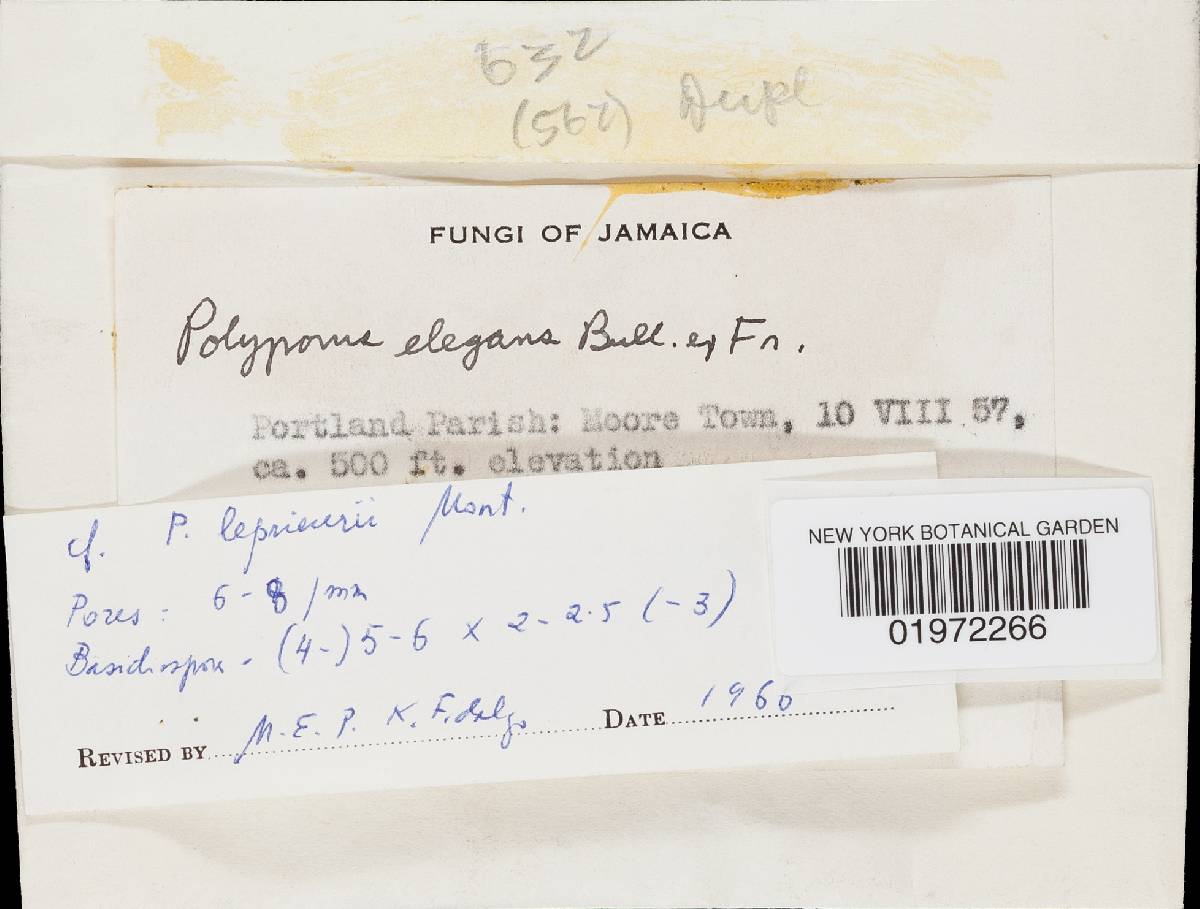 632
(567) Dupl
FUNGI OF JAMAICA
Polyporus elegans Bull. ex Fr.
Portland Parish: Moore Town, 10 VIII 57,
ca. 500 ft. elevation
cf. P. leprieurii Mont.
Pores: 6-8 /mm
Basidiospore - (4-) 5-6 x 2-2.5 (-3)
REVISED BY M. E. P. K. Fidalgo DATE 1960
NEW YORK BOTANICAL GARDEN
01972266